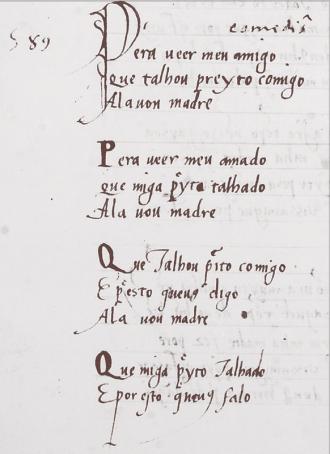 589
Pera ueer meu amigo
que talhou preyto comigo
Ala uou madre
Pera ueer meu amado
que miga p̃yto talhado
Ala uou madre
Que Talhou p̃ito comigo
E p̃esto digo
Ala uou madre
Que miga p̃yto Talhado
E por esto falo